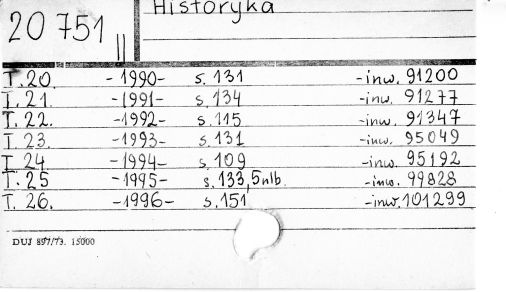 Historyka
20 751 ||
T. 20. -1990- s. 131 -inw. 91200
T. 21. -1991- s. 134 -inw. 91277
T. 22. -1992- s. 115 -inw. 91347
T. 23. -1993- s. 131 -inw. 95049
T. 24 -1994- s. 109 -inw. 95192
T. 25 -1995- s. 133,5nlb. -inw. 99828
T. 26. -1996- s. 151 -inw. 101299
DUJ 897/73. 15000